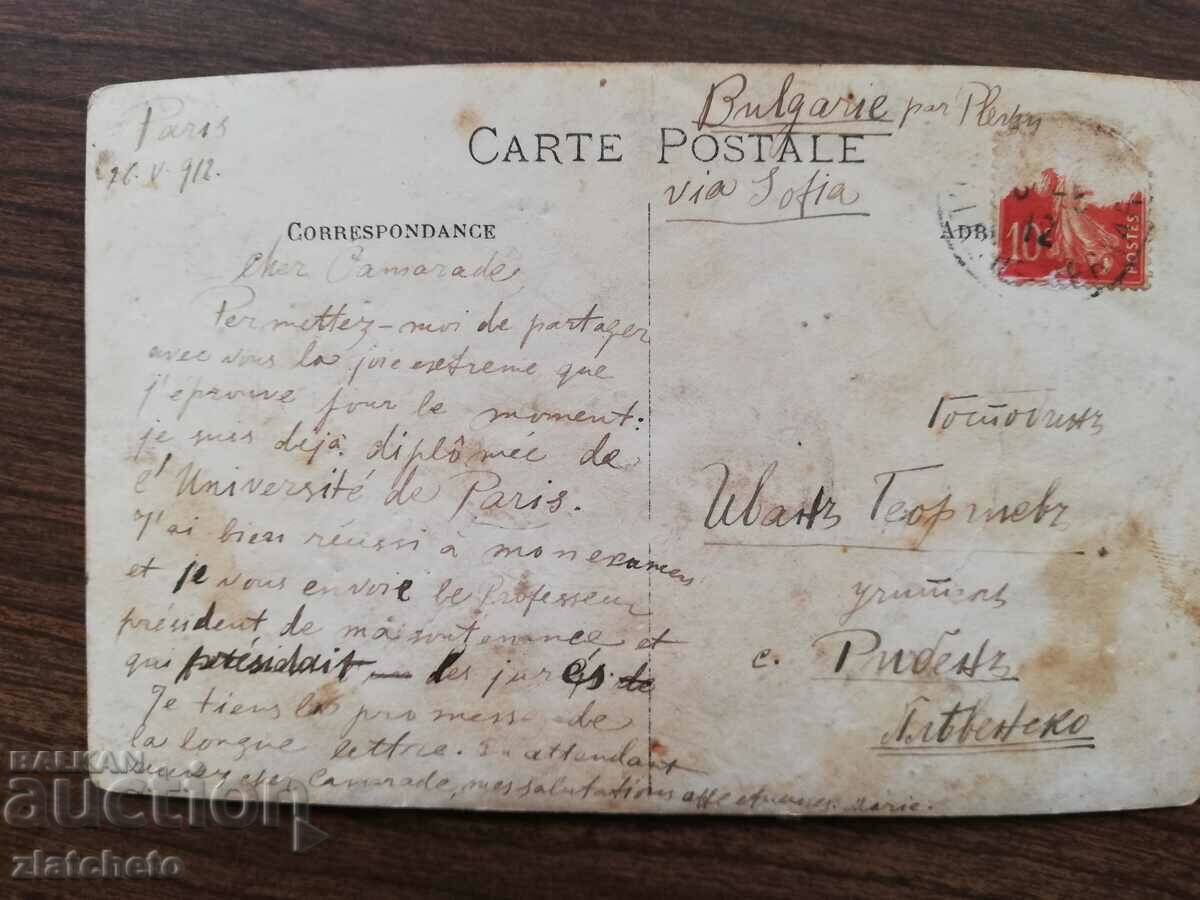 Paris
26. V. 912.
Bulgarie par
CARTE POSTALE
via Sofia
CORRESPONDANCE
ADR
10
POSTES
Cher Camarade,
Permettez-moi de partager
avec vous la joie extreme que
j'éprouve pour le moment:
je suis déjà diplômée de
l'Université de Paris.
J'ai bien réussi à mon examen
et je vous envoie le Professeur
président de ma soutenance et
qui présidait les jurés de
Je tiens la promesse de
la longue lettre. En attendant
cher Camarade, mes salutations affectueuses. Marie.
Господинъ
Иванъ Георгиевъ
учитель
с. Рибенъ
Плѣвенско
BALKAN
auction
zlatcheto